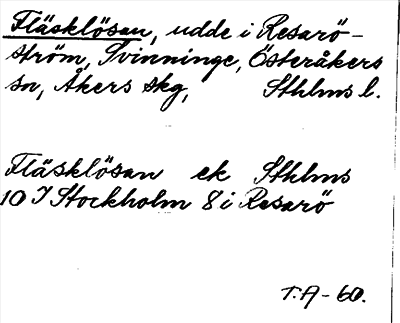 Fläsklösan, udde i Resarö-
ström, Svinninge, Österåkers
sn, Åkers skg, Sthlms l.
Fläsklösan ek Sthlms
10 I Stockholm 8 i Resarö
T.A-60.